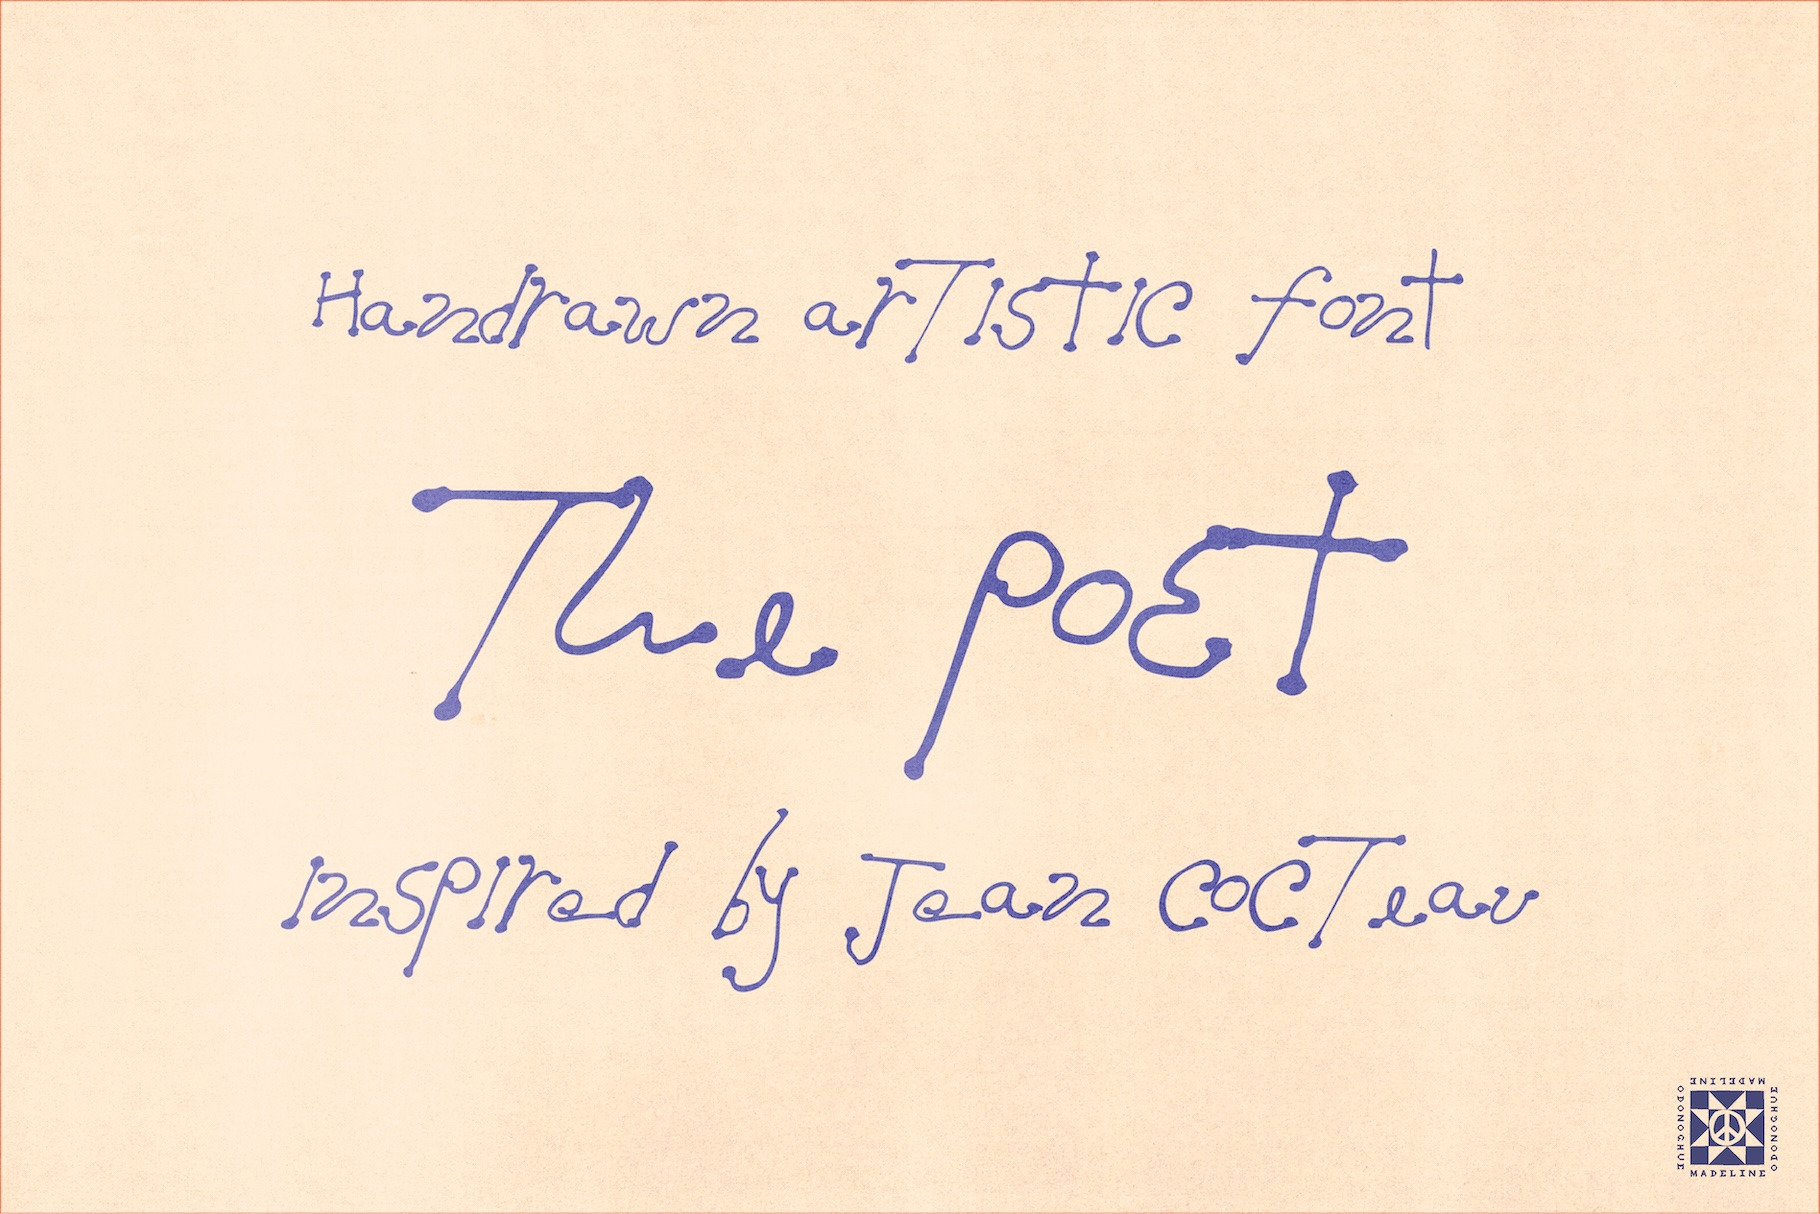 Handrawn arTIStIC font
The poEt
Inspired by Jean CocTeau
MADELINE
ODONOGHUE
ODONOGHUE
MADELINE